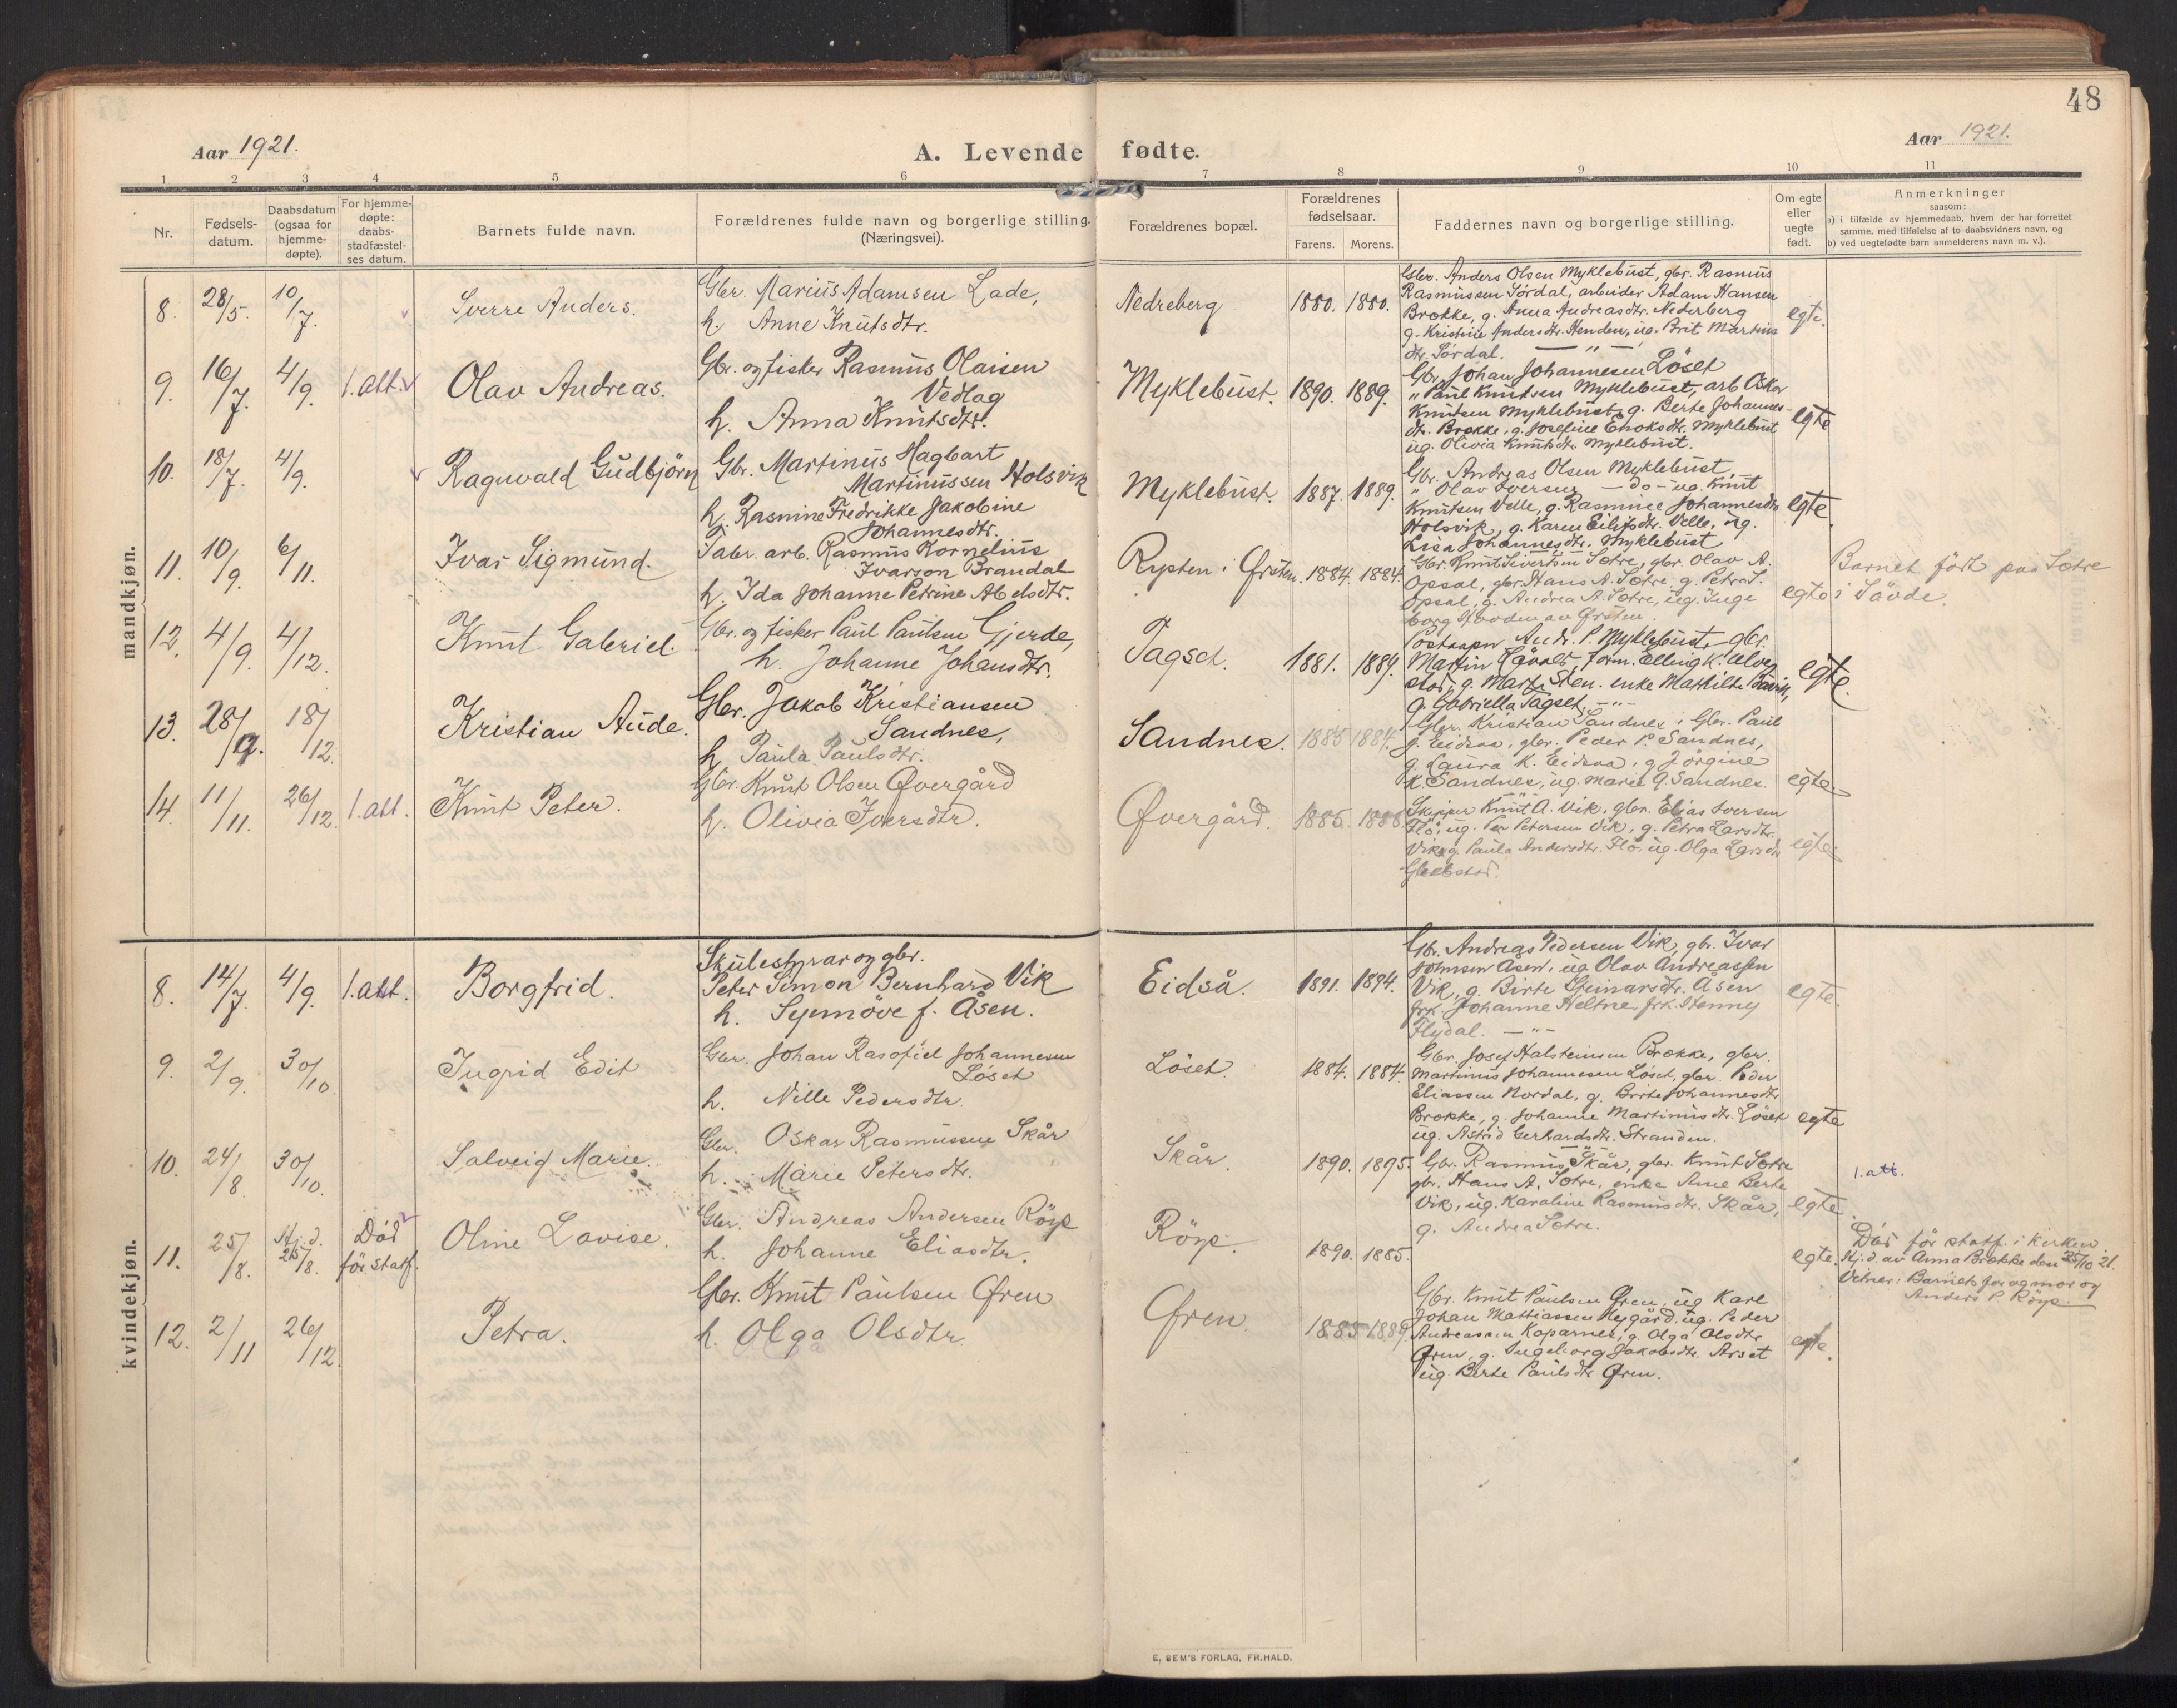 48
Aar 1921.
A. Levende fødte.
Aar 1921.
1 2 3 4 5 6 7 8 9 10 11
Nr.
Fødsels-
datum.
Daabsdatum
(ogsaa for
hjemme-
døpte).
For hjemme-
døpte:
daabs-
stadfæstel-
ses datum.
Barnets fulde navn.
Forældrenes fulde navn og borgerlige stilling.
(Næringsvei).
Forældrenes bopæl.
Forældrenes
fødselsaar.
Farens. Morens.
Faddernes navn og borgerlige stilling.
Om egte
eller
uegte
født.
Anmerkninger
saasom:
a) i tilfælde av hjemmedaab, hvem der har forrettet
samme, med tilføielse af to daabsvidners navn, og
b) ved uegtefødte barn anmelderens navn m. v.).
mandkjøn.
8. 28/5. 10/7.
Sverre Anders.
Gbr. Marius Adamsen Lade,
h. Anne Knutsdtr.
Nedreberg 1880. 1880.
Gbr. Anders Olsen Myklebust, gbr. Rasmus
Rasmussen Sördal, arbeider Adam Hansen
Brekke, g. Anna Andreasdtr. Nederberg
g. Kristine Andersdtr. Henden, ug. Brit Martins
dtr. Sördal. — " —
egte.
9. 16/7. 4/9. 1. att.
Olav Andreas.
Gbr. og fisker Rasmus Olaisen
Vedlag
h. Anna Knutsdtr.
Myklebust. 1890. 1889.
Gbr. Johan Johannesen Löset
" Paul Knutsen Myklebust, arb Oskar
Knutsen Myklebust, g. Berte Johannes-
dtr. Brekke, g. Josefine Enoksdtr. Myklebust
ug. Olivia Knutsdtr. Myklebust.
egte
10. 18/7. 4/9.
Ragnvald Gudbjörn
Gbr. Martinus Hagbart
Martinussen Holsvik
h. Rasmine Fredrikke Jakobine
Johannesdtr.
Myklebust. 1887. 1889.
Gbr. Andreas Olsen Myklebust,
" Olav Iversen — do — ug. Knut
Knutsen Velle, g. Rasmine Johannesdtr
Holsvik, g. Karen Eilifsdtr. Velle, ug.
Lisa Johannesdtr. Myklebust
egte.
11. 10/9. 6/11.
Ivar Sigmund.
Fabr. arb. Rasmus Kornelius
Ivarson Brandal
h. Ida Johanne Petrine Abelsdtr.
Rysten i Ørsten. 1884. 1884.
Gbr. Knut Sivertsen Sætre, gbr. Olav A.
Opsal, gbr. Hans A. Sætre, g. Petra S.
Opsal, g. Andrea A. Sætre, ug. Inge
borg Hovden av Ørsten.
egte
Barnet födt paa Sætre
i Sövde.
12. 4/9. 4/12.
Knut Gabriel.
Gbr. og fisker Paul Paulsen Gjerde,
h. Johanne Johansdtr.
Tagset. 1881. 1889.
Andr. P. Myklebust, gbr.
Martin form. Elling K. Alve
stad, g. Marte enke Mathilde
g. Gabriella Tagset. — " —
egte.
13. 28/9. 18/12.
Kristian Aude.
Gbr. Jakob Kristiansen
Sandnes,
h. Paula Paulsdtr.
Sandnes. 1885 1884.
Gbr. Kristian Sandnes, Gbr. Paul
J. Eidsaa, gbr. Peder P. Sandnes,
g. Laura K. Eidsaa, g Jörgine
K. Sandnes, ug. Marie G Sandnes.
egte
14. 11/11. 26/12. 1. att.
Knut Peter.
Gbr. Knut Olsen Øvergård
h. Olivia Iversdtr.
Øvergård. 1885. 1888.
Skipper Knut A. Vik, gbr. Elias Iversen
Flö, ug. Per Petersen Vik, g. Petra Larsdtr.
Vik, g. Paula Andersdtr. Flö, ug. Olga Larsdtr
egte
kvindekjøn.
8. 14/7. 4/9. 1. att.
Borgfrid.
Skulestyrar og gbr.
Peter Simon Bernhard Vik
h. Synnöve f. Åsen.
Eidså. 1891. 1894.
Gbr. Andreas Pedersen Vik, gbr. Ivar
Johnsen Åsen, ug Olav Andreassen
Vik, g. Birte Steinarsdtr. Åsen
frk. Johanne Heltne, frk. Henny
Flydal. — " —
egte.
9. 2/9. 30/10.
Ingrid Edit
Gbr. Johan Rasofiel Johannesen
Löset
h. Nille Pedersdtr.
Löset. 1884. 1884.
Gbr. Josef Halsteinsen Brekke, gbr.
Martinus Johannesen Löset, gbr. Peder
Eliassen Nordal, g. Birte Johannesdtr
Brekke, g. Johanne Martinusdtr. Löset
ug. Astrid Gerhardsdtr. Stranden.
egte
10. 24/8. 30/10.
Solveig Marie.
Gbr. Oskar Rasmussen Skår
h. Marie Petersdtr.
Skår. 1890. 1895.
Gbr. Rasmus Skår, gbr. Knut Sætre
gbr. Hans A. Sætre, enke Ane Berte
Vik, ug. Karoline Rasmusdtr. Skår,
g. Andrea Sætre.
egte.
1. att.
11. 25/8. Hj.d. 25/8. Död
för staf.
Oline Lovise.
Gbr. Andreas Andersen Röys
h. Johanne Eliasdtr.
Röys. 1890. 1885.
egte.
Död för statf. i kirken
Hj.d. av Anna Brekke den 25/10 21.
Vitner: Barnets far og mor og
Anders P. Röys.
12. 2/11 26/12.
Petra.
Gbr. Knut Paulsen Øren
h. Olga Olsdtr.
Øren. 1885 1889.
Gbr. Knut Paulsen Øren, ug Karl
Johan Mattiassen Nygård, ug. Peder
Andreassen Koparnes, g. Olga Olsdtr
Øren, g. Ingeborg Jakobsdtr. Årset
ug. Berte Paulsdtr Øren.
egte.
E. SEM'S FORLAG, FR.HALD.